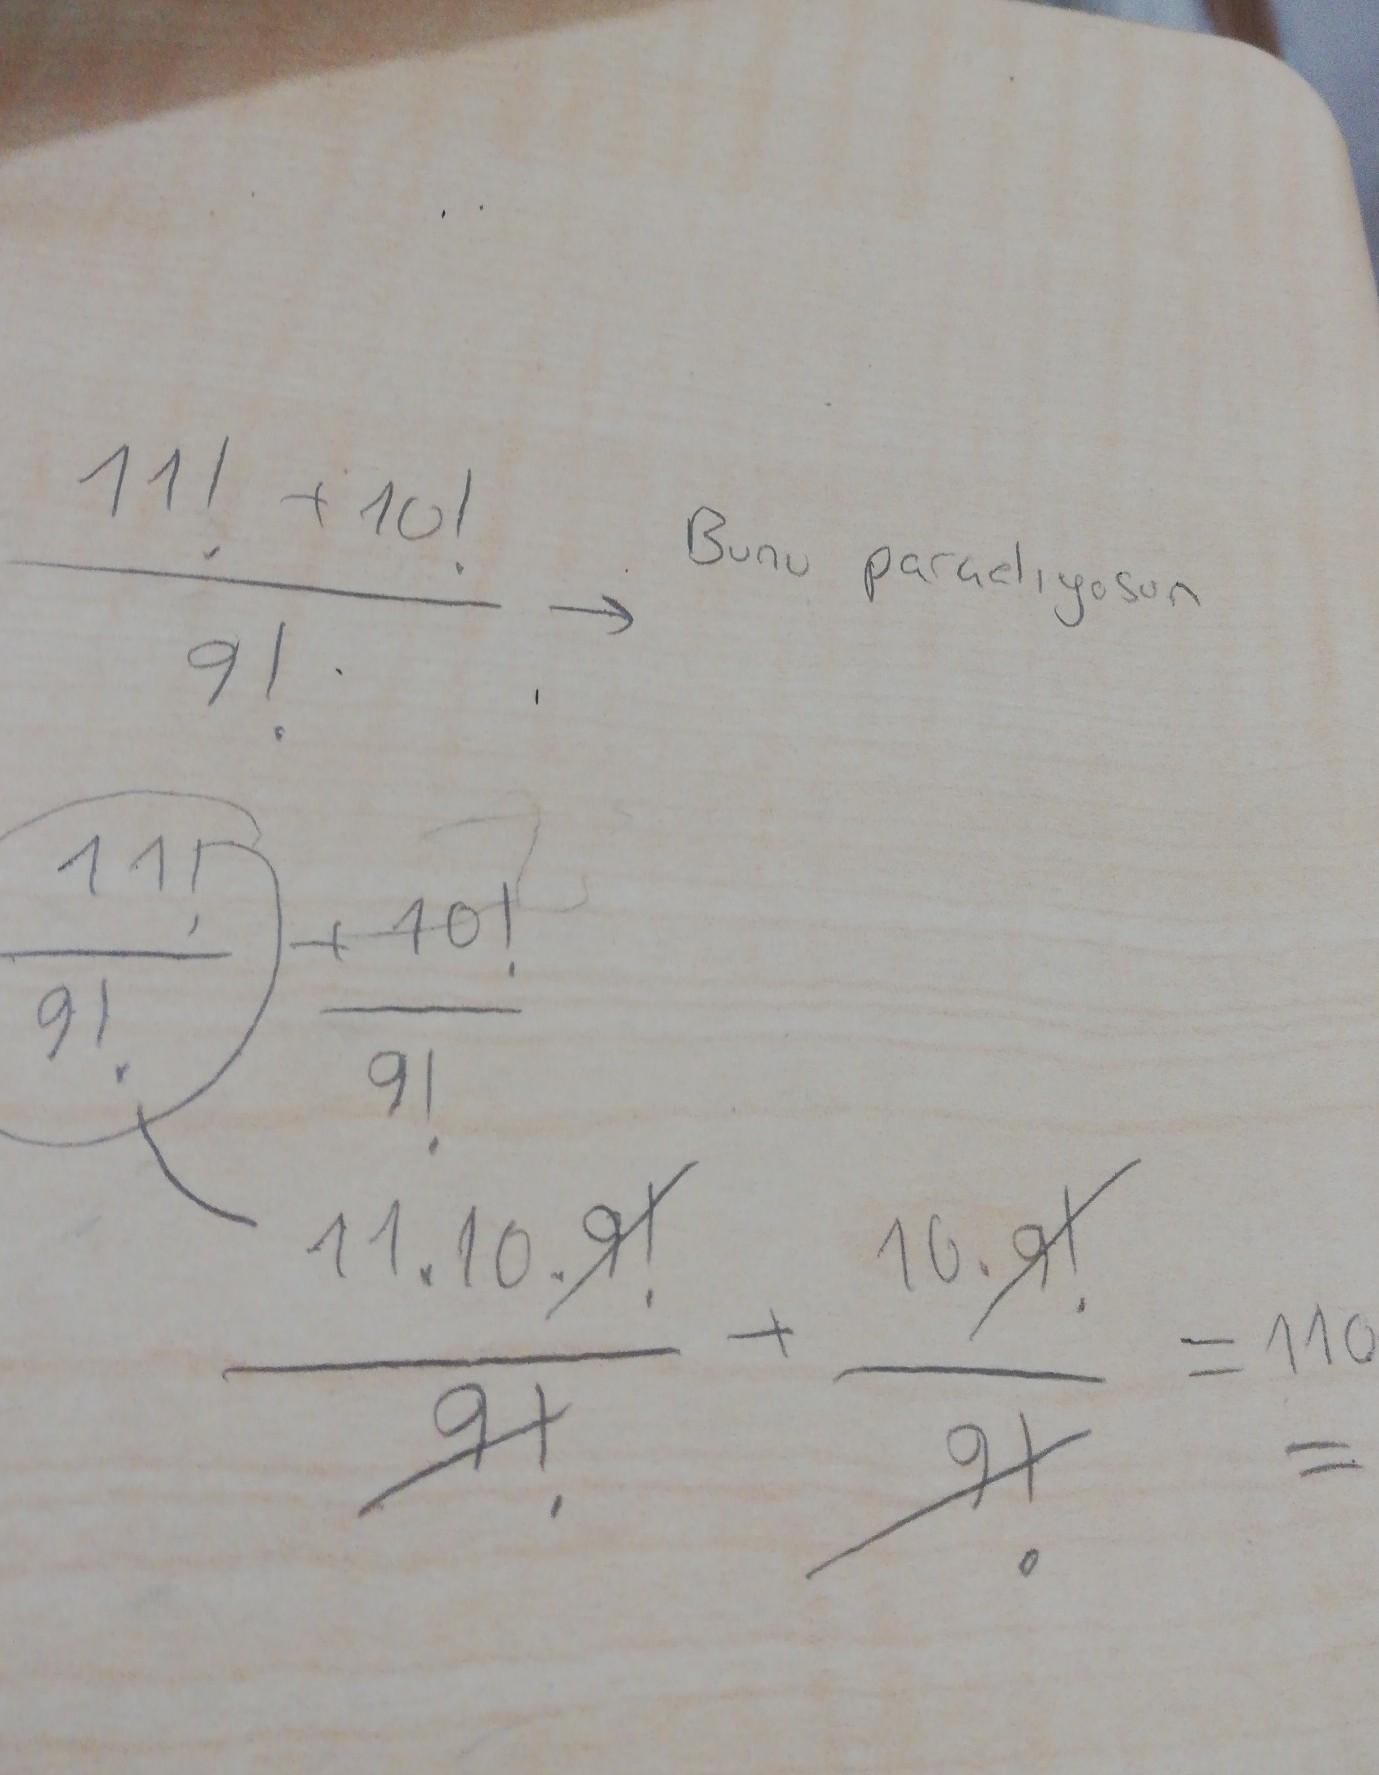 11! + 10!
9!
→ Bunu paraclıyosun
11! + 10!
9! 9!
11.10.9! + 10.9! = 110
9! 9! =